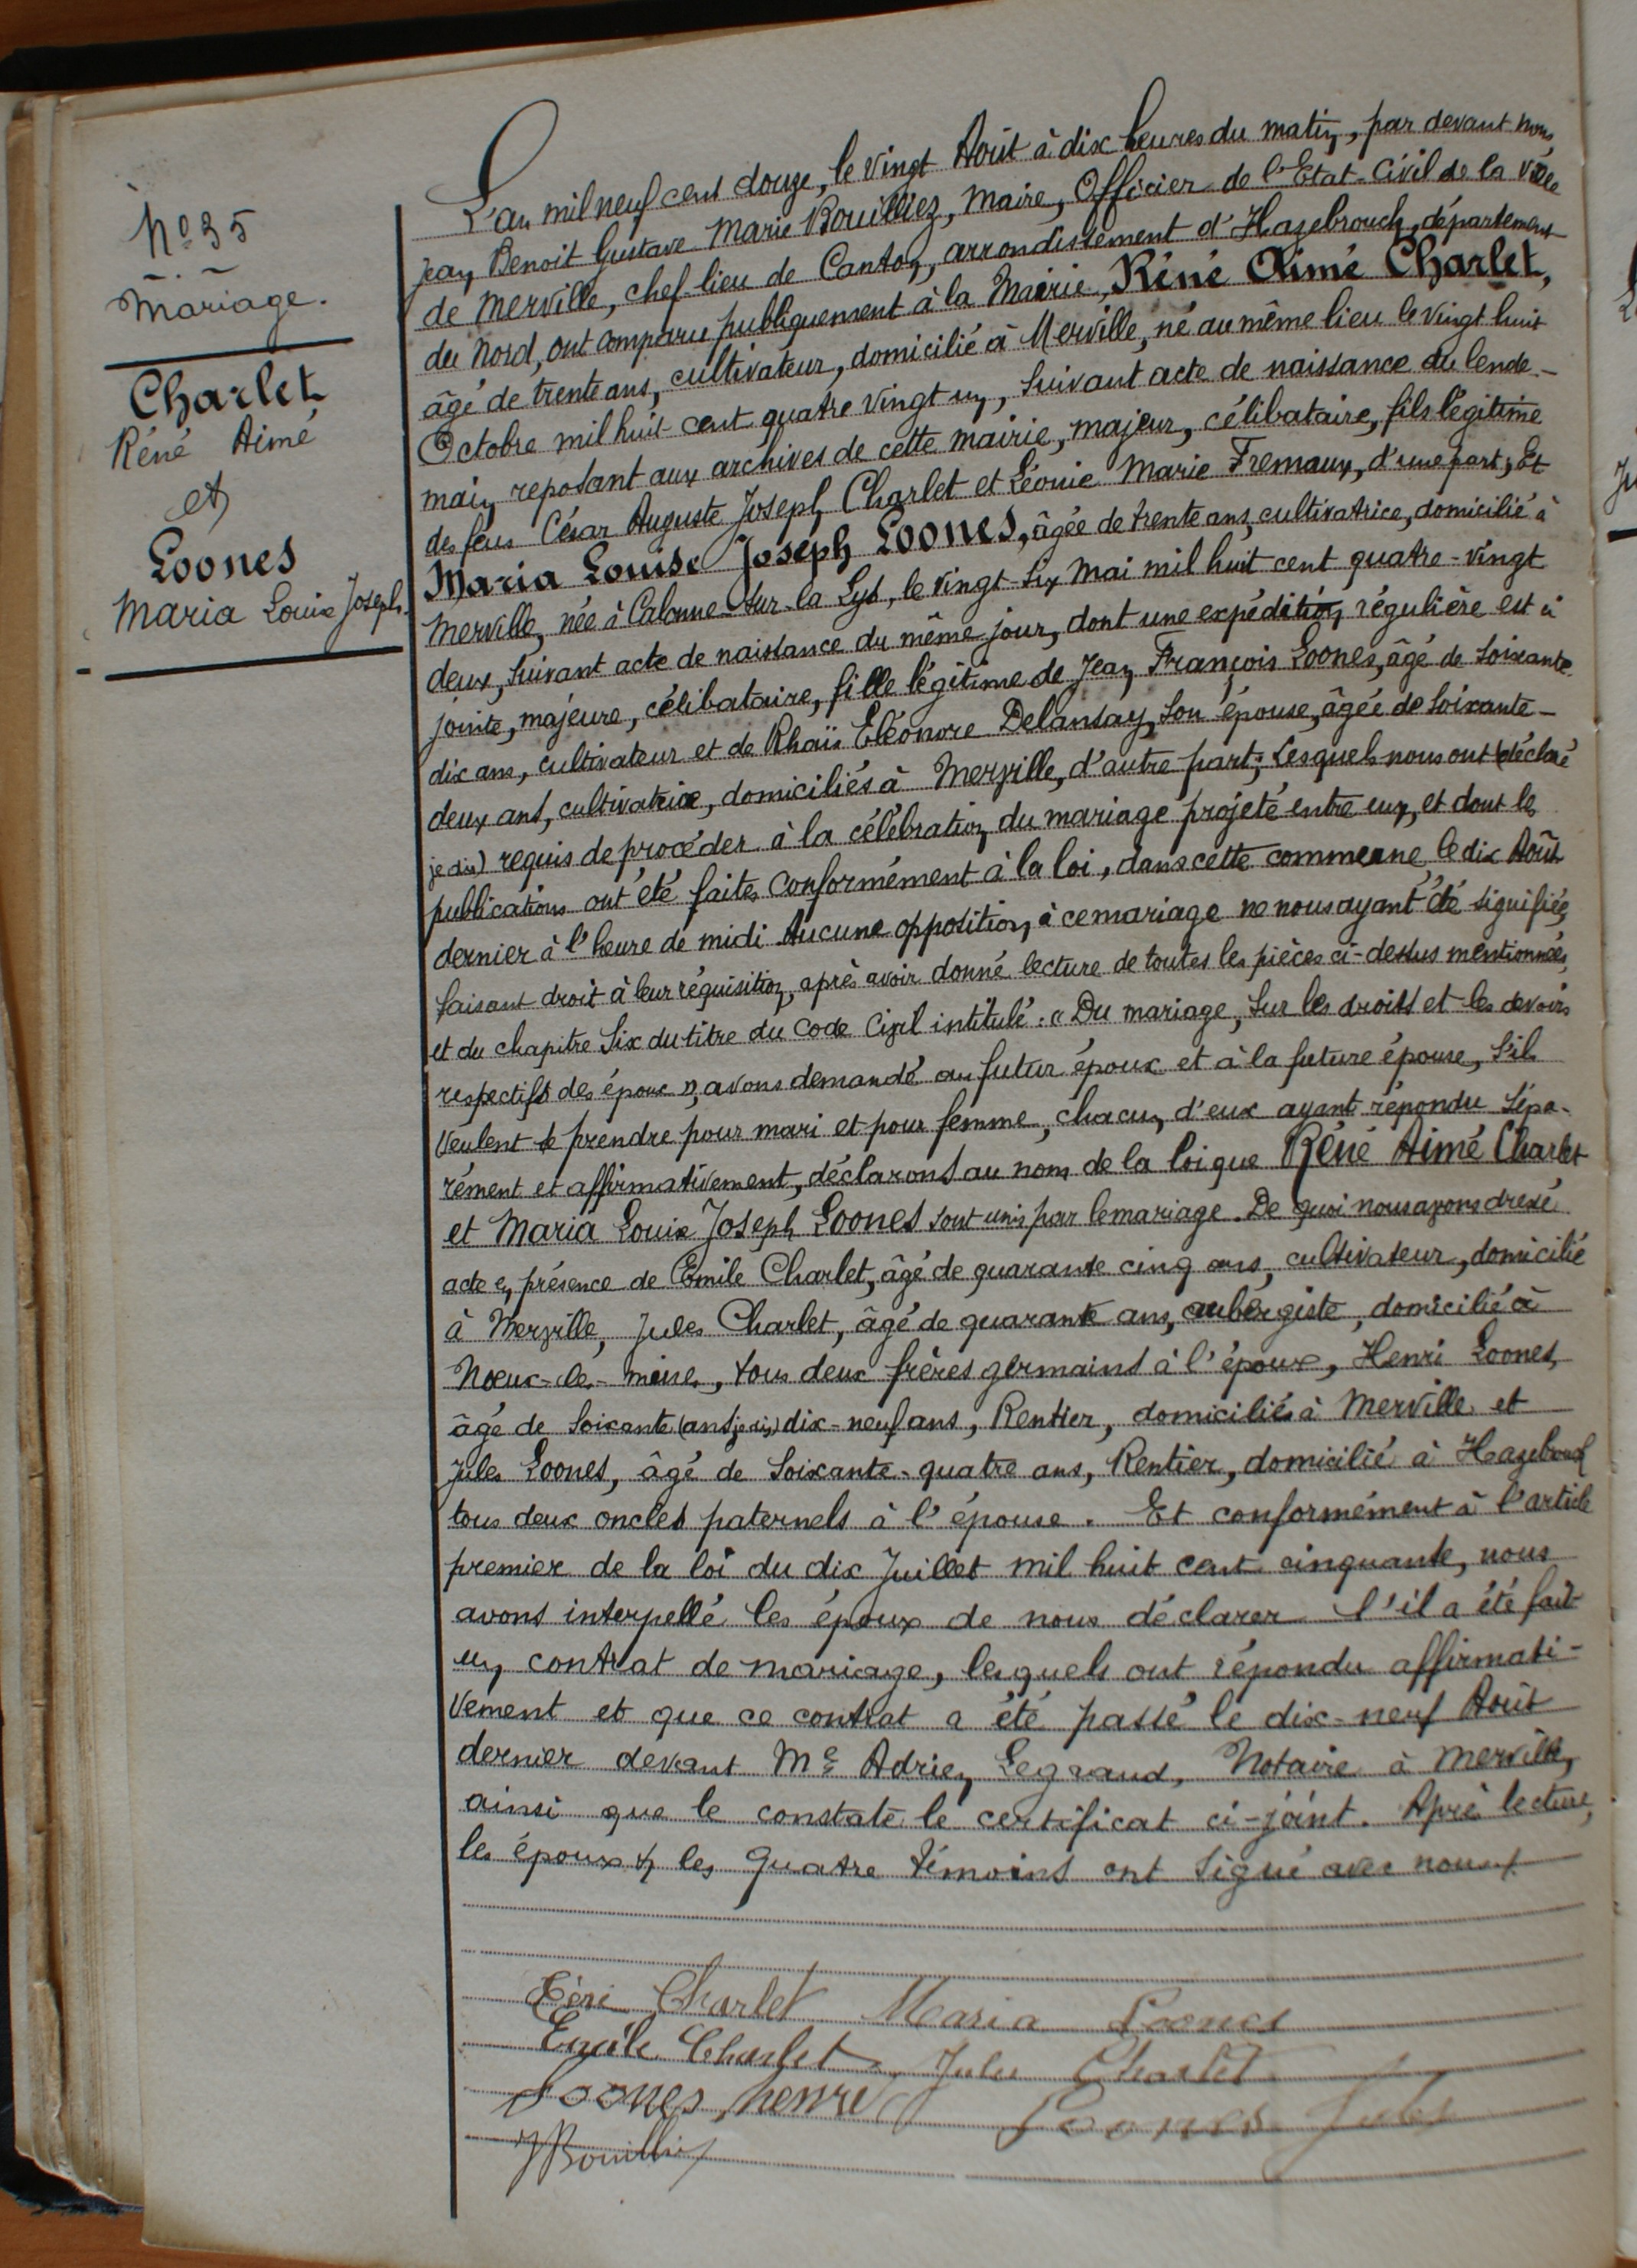 N° 35
Mariage.
Charlet
Réné Aimé
et
Loones
Maria Louise Joseph.
L'an mil neuf cent douze, le vingt Août à dix heures du matin, par devant nous,
Jean Benoit Gustave Marie Bouilliez, Maire, Officier de l'Etat-Civil de la ville
de Merville, chef-lieu de Canton, arrondissement d'Hazebrouck, département
du Nord, ont comparu publiquement à la Mairie, Réné Aimé Charlet,
âgé de trente ans, cultivateur, domicilié à Merville, né au même lieu le vingt huit
Octobre mil huit cent quatre vingt un, suivant acte de naissance du lende-
main reposant aux archives de cette mairie, majeur, célibataire, fils légitime
des feus César Auguste Joseph Charlet et Léonie Marie Fremaux, d'une part; Et
Maria Louise Joseph Loones, âgée de trente ans, cultivatrice, domicilié à
Merville, née à Calonne-sur-la Lys, le vingt-six Mai mil huit cent quatre-vingt
deux, suivant acte de naissance du même jour, dont une expédition régulière est ci
jointe, majeure, célibataire, fille légitime de Jean François Loones, âgé de soixante
dix ans, cultivateur et de Rhaïs Eléonore Delansay, son épouse, âgée de soixante-
deux ans, cultivatrice, domiciliés à Merville, d'autre part; Lesquels nous ont (déclaré
je dis) requis de procéder à la célébration du mariage projeté entre eux, et dont les
publications ont été faites conformément à la loi, dans cette commune, le dix Août
dernier à l'heure de midi. Aucune opposition à ce mariage ne nous ayant été signifiée,
faisant droit à leur réquisition, après avoir donné lecture de toutes les pièces ci-dessus mentionnées,
et du chapitre Six du titre du Code Civil intitulé: « Du mariage, sur les droits et les devoirs
respectifs des époux », avons demandé au futur époux et à la future épouse, s'ils
veulent se prendre pour mari et pour femme, chacun d'eux ayant répondu sépa-
rément et affirmativement, déclarons au nom de la loi que Réné Aimé Charlet
et Maria Louise Joseph Loones sont unis par le mariage. De quoi nous avons dressé
acte en présence de Emile Charlet, âgé de quarante cinq ans, cultivateur, domicilié
à Merville, Jules Charlet, âgé de quarante ans, aubergiste, domicilié à
Nœux-les-mines, tous deux frères germains à l'époux, Henri Loones,
âgé de soixante (ans, je dis) dix-neuf ans, Rentier, domiciliés à Merville et
Jules Loones, âgé de soixante-quatre ans, Rentier, domicilié à Hazebrouck
tous deux oncles paternels à l'épouse. Et conformément à l'article
premier de la loi du dix Juillet mil huit cent cinquante, nous
avons interpellé les époux de nous déclarer s'il a été fait
un contrat de mariage, lesquels ont répondu affirmati-
vement et que ce contrat a été passé le dix-neuf Août
dernier devant Me Adrien Legrand, Notaire à Merville,
ainsi que le constate le certificat ci-joint. Après lecture,
les époux et les quatre témoins ont signé avec nous
Réné Charlet Maria Loones
Emile Charlet Jules Charlet
Loones henri Loones Jules
JBouilliez